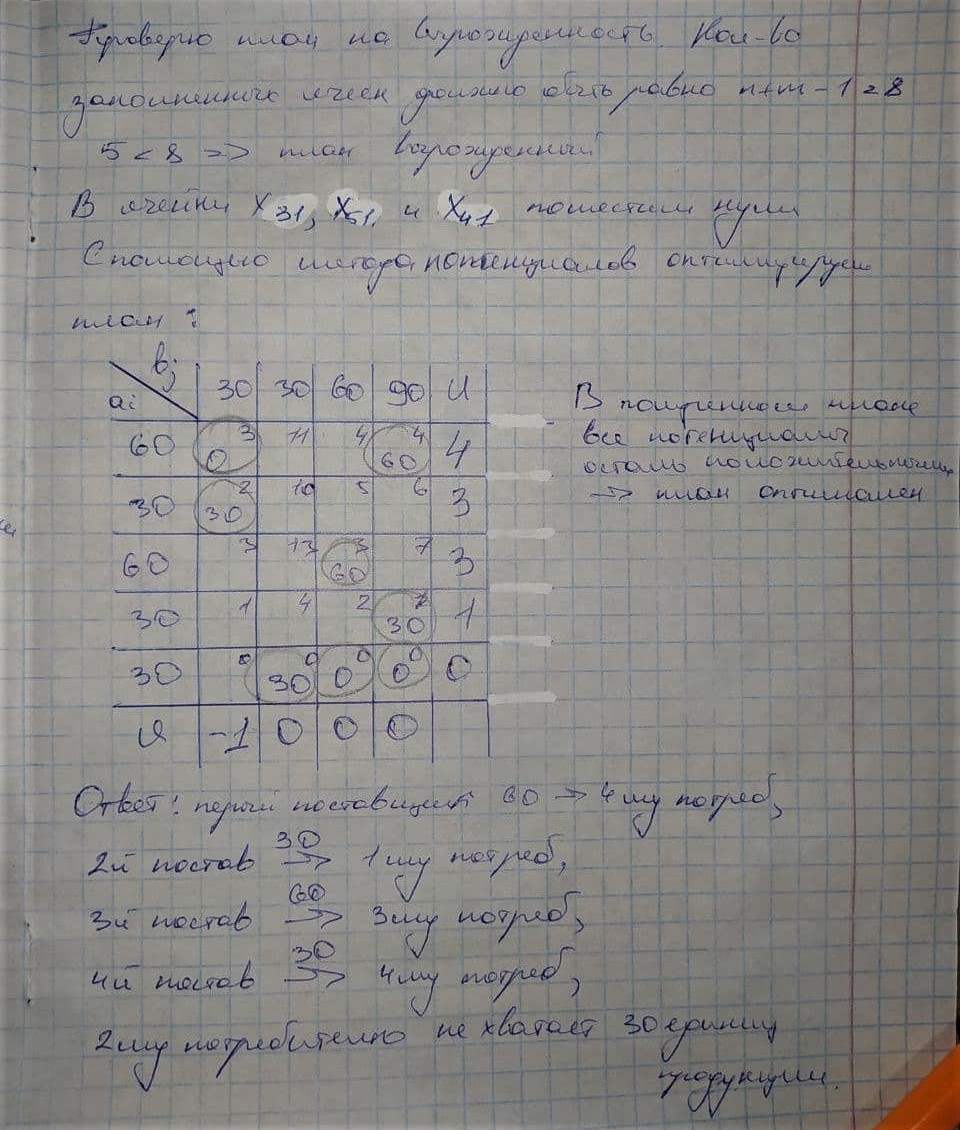 Проверю план на вырожденность. Кол-во
заполненных ячеек должно быть равно n+m-1=8
5 < 8 => план вырожденный
В ячейки X31, X51, и X41 поместим нули
С помощью метода потенциалов оптимизируем
план:
bj
ai 30 30 60 90 U
60 3 0 11 4 4 60 4
30 2 30 10 5 6 3
60 3 13 3 60 7 3
30 1 4 2 30 1
30 0 0 30 0 0 0 0 0
V -1 0 0 0
В полученном плане
все потенциалы
положительными
-> план оптимален
Ответ: первый поставщик 60 -> 4му потреб,
2й постав 30 -> 1му потреб,
3й постав 60 -> 3му потреб,
4й постав 30 -> 4му потреб,
2му потребителю не хватает 30 единиц
продукции.